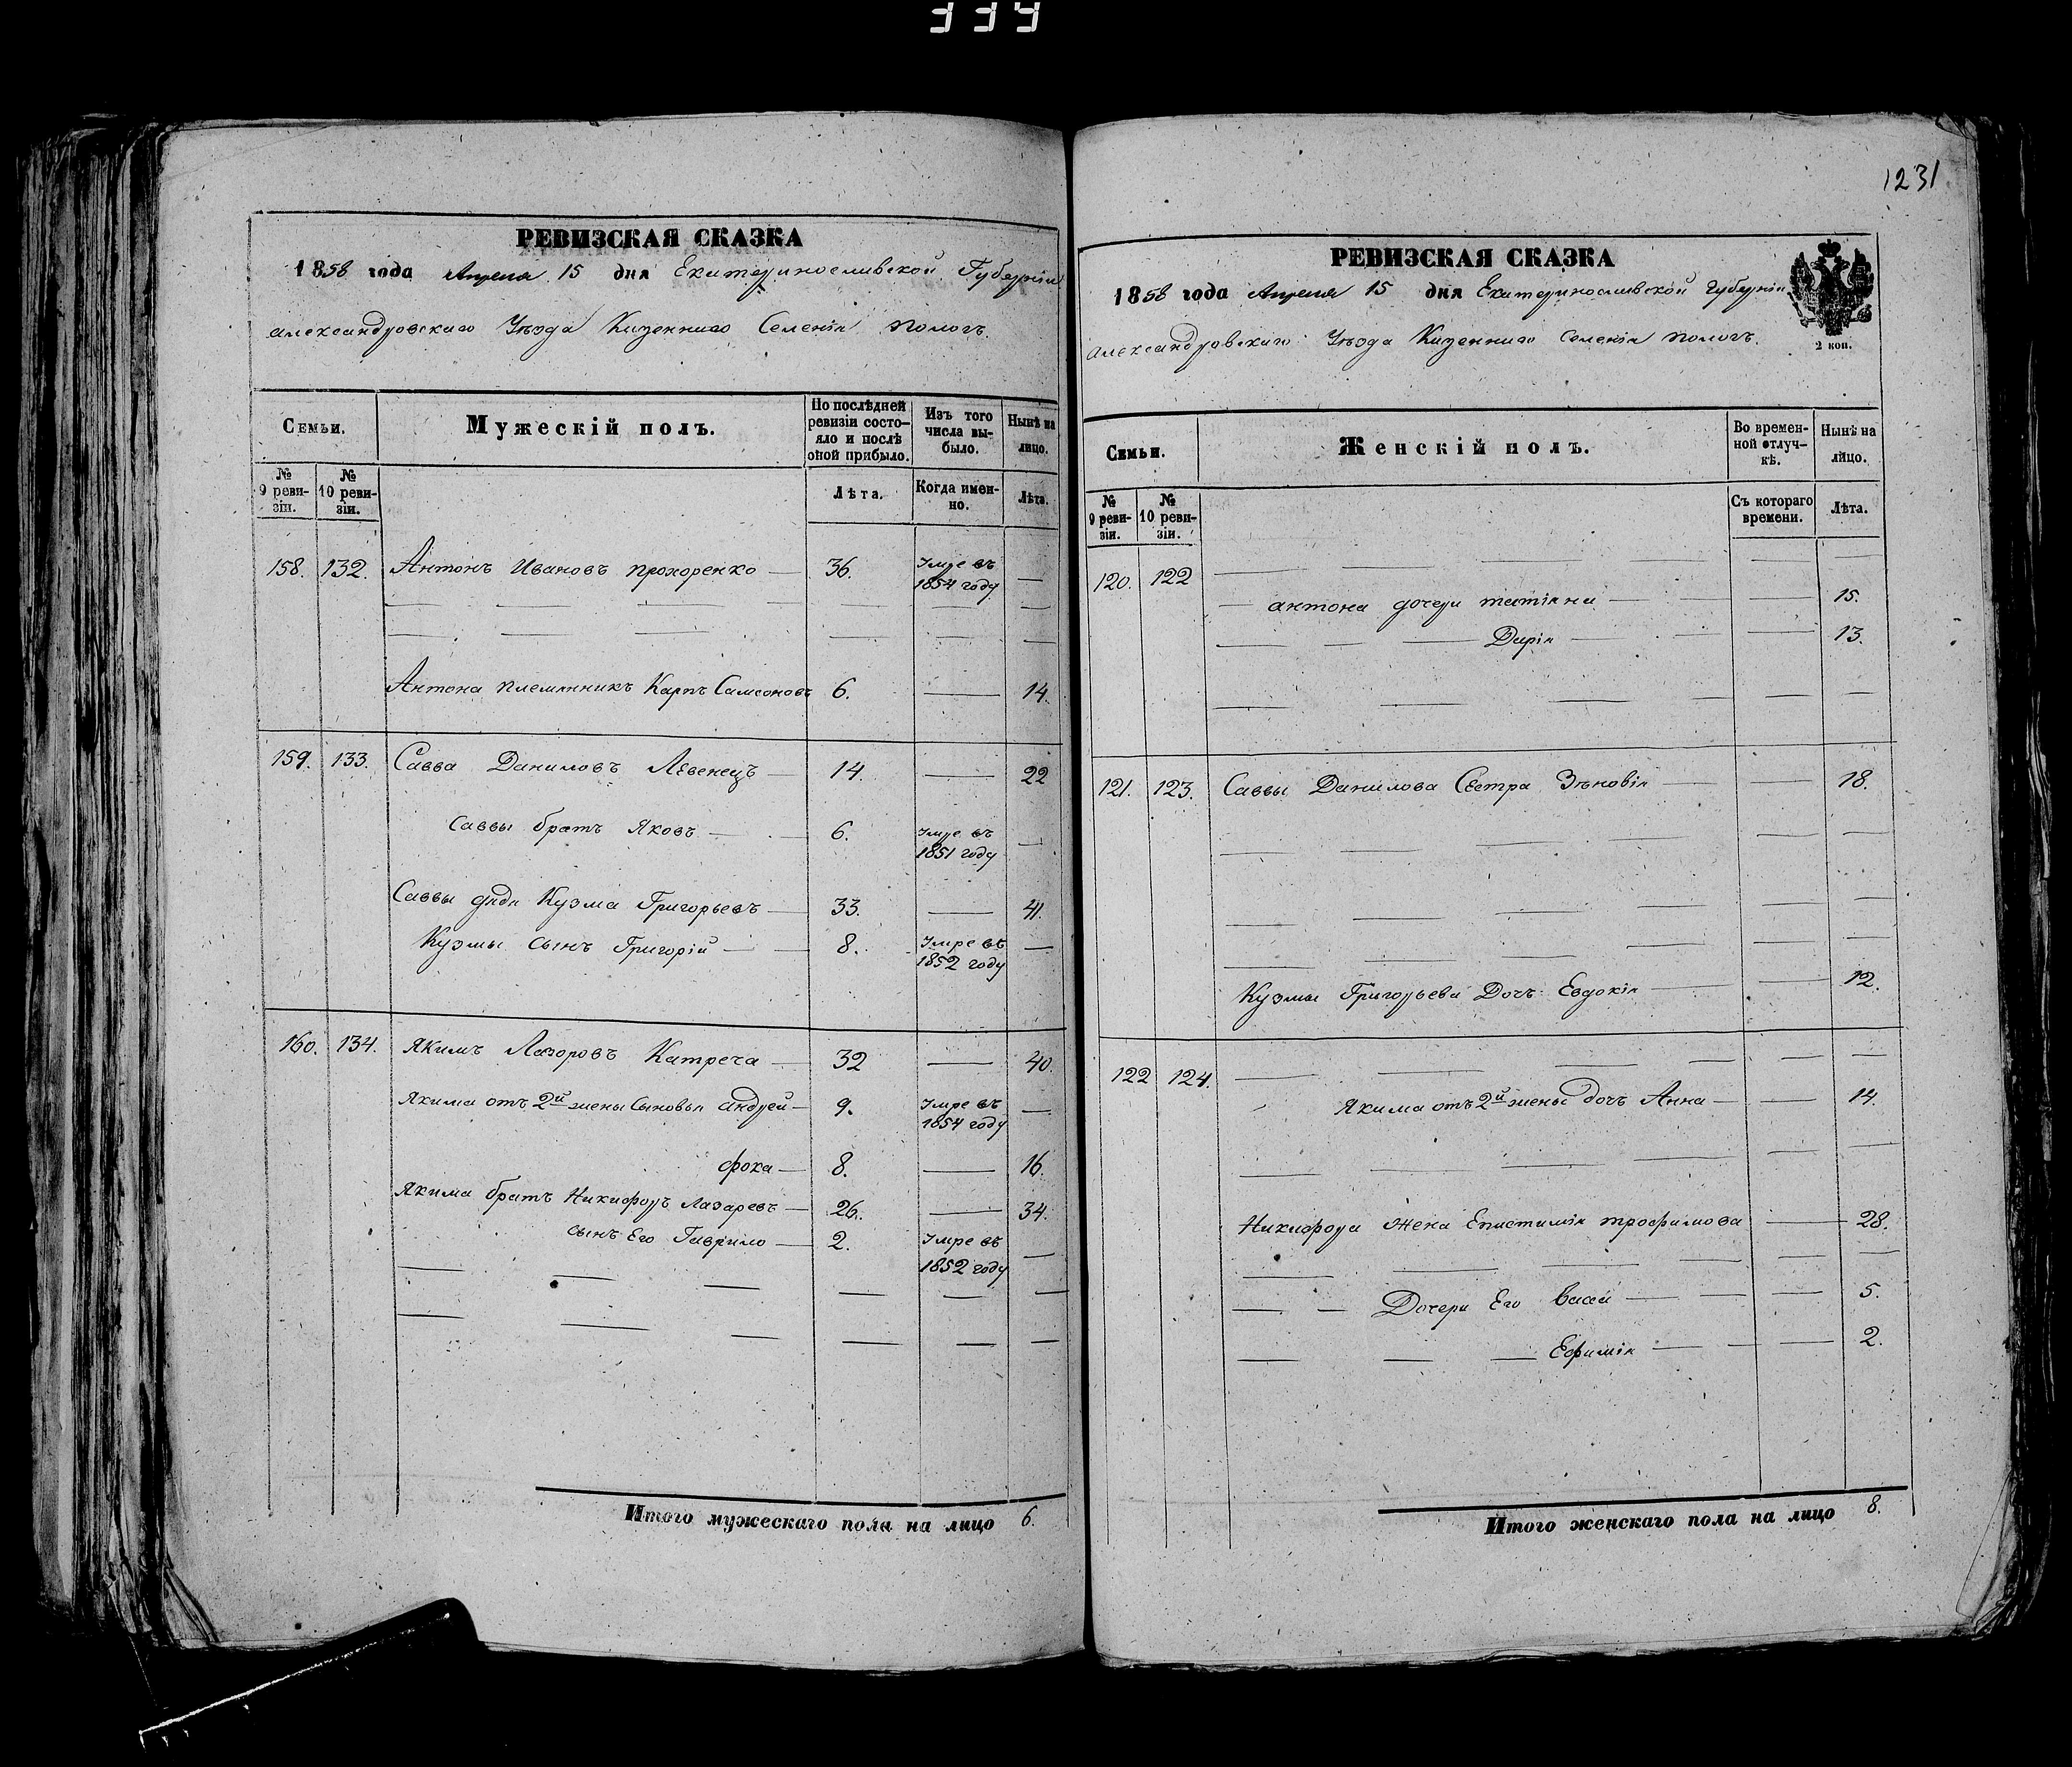 334
РЕВИЗСКАЯ СКАЗКА
1858 года Апреля 15 дня Екатеринославской Губернии
Александровскаго Уѣзда Казеннаго Селенія Пологъ.
Семьи.
Мужескій полъ.
По послѣдней ревизіи состо-яло и послѣ оной прибыло.
Изъ того числа вы-было.
Нынѣ на лицо.
№ 9 реви-зіи.
№ 10 реви-зіи.
Лѣта.
Когда имен-но.
Лѣта.
158. 132. Антонъ Ивановъ Прохоренко — 36. Умре въ 1854 году —
Антона племянникъ Карпъ Самсоновъ 6. — 14.
159. 133. Савва Даниловъ Левенецъ — 14. — 22
Саввы братъ Яковъ — 6. Умре въ 1851 году —
Саввы дядя Кузма Григорьевъ — 33. — 41.
Кузмы сынъ Григорій — 8. Умре въ 1852 году —
160. 134. Якимъ Лазоровъ Катреча — 32 — 40.
Якима отъ 2й жены Сыновья андрей — 9. Умре въ 1854 году —
фока — 8. — 16.
Якима братъ Никифоръ Лазаревъ — 26. — 34.
сынъ Его Гаврило — 2. Умре въ 1852 году —
Итого мужескаго пола на лицо 6.
1231
РЕВИЗСКАЯ СКАЗКА
1858 года Апреля 15 дня Екатеринославской Губерніи
Александровскаго Уѣзда Казеннаго Селенія Пологъ.
2 коп.
Семьи.
Женскій полъ.
Во времен-ной отлуч-кѣ.
Нынѣ на лицо.
№ 9 реви-зіи.
№ 10 реви-зіи.
Съ котораго времени.
Лѣта.
120. 122
антона дочери татіяна — 15.
Дарія — 13.
121. 123. Саввы Данилова Сестра Зѣновія — 18.
Кузмы Григорьева Дочь Евдокія — 12.
122 124.
Якима отъ 2й жены дочь Анна — 14.
Никифора жена Епистимія трофимова — 28.
Дочери Его Васса — 5.
Ефимія — 2.
Итого женскаго пола на лицо 8.